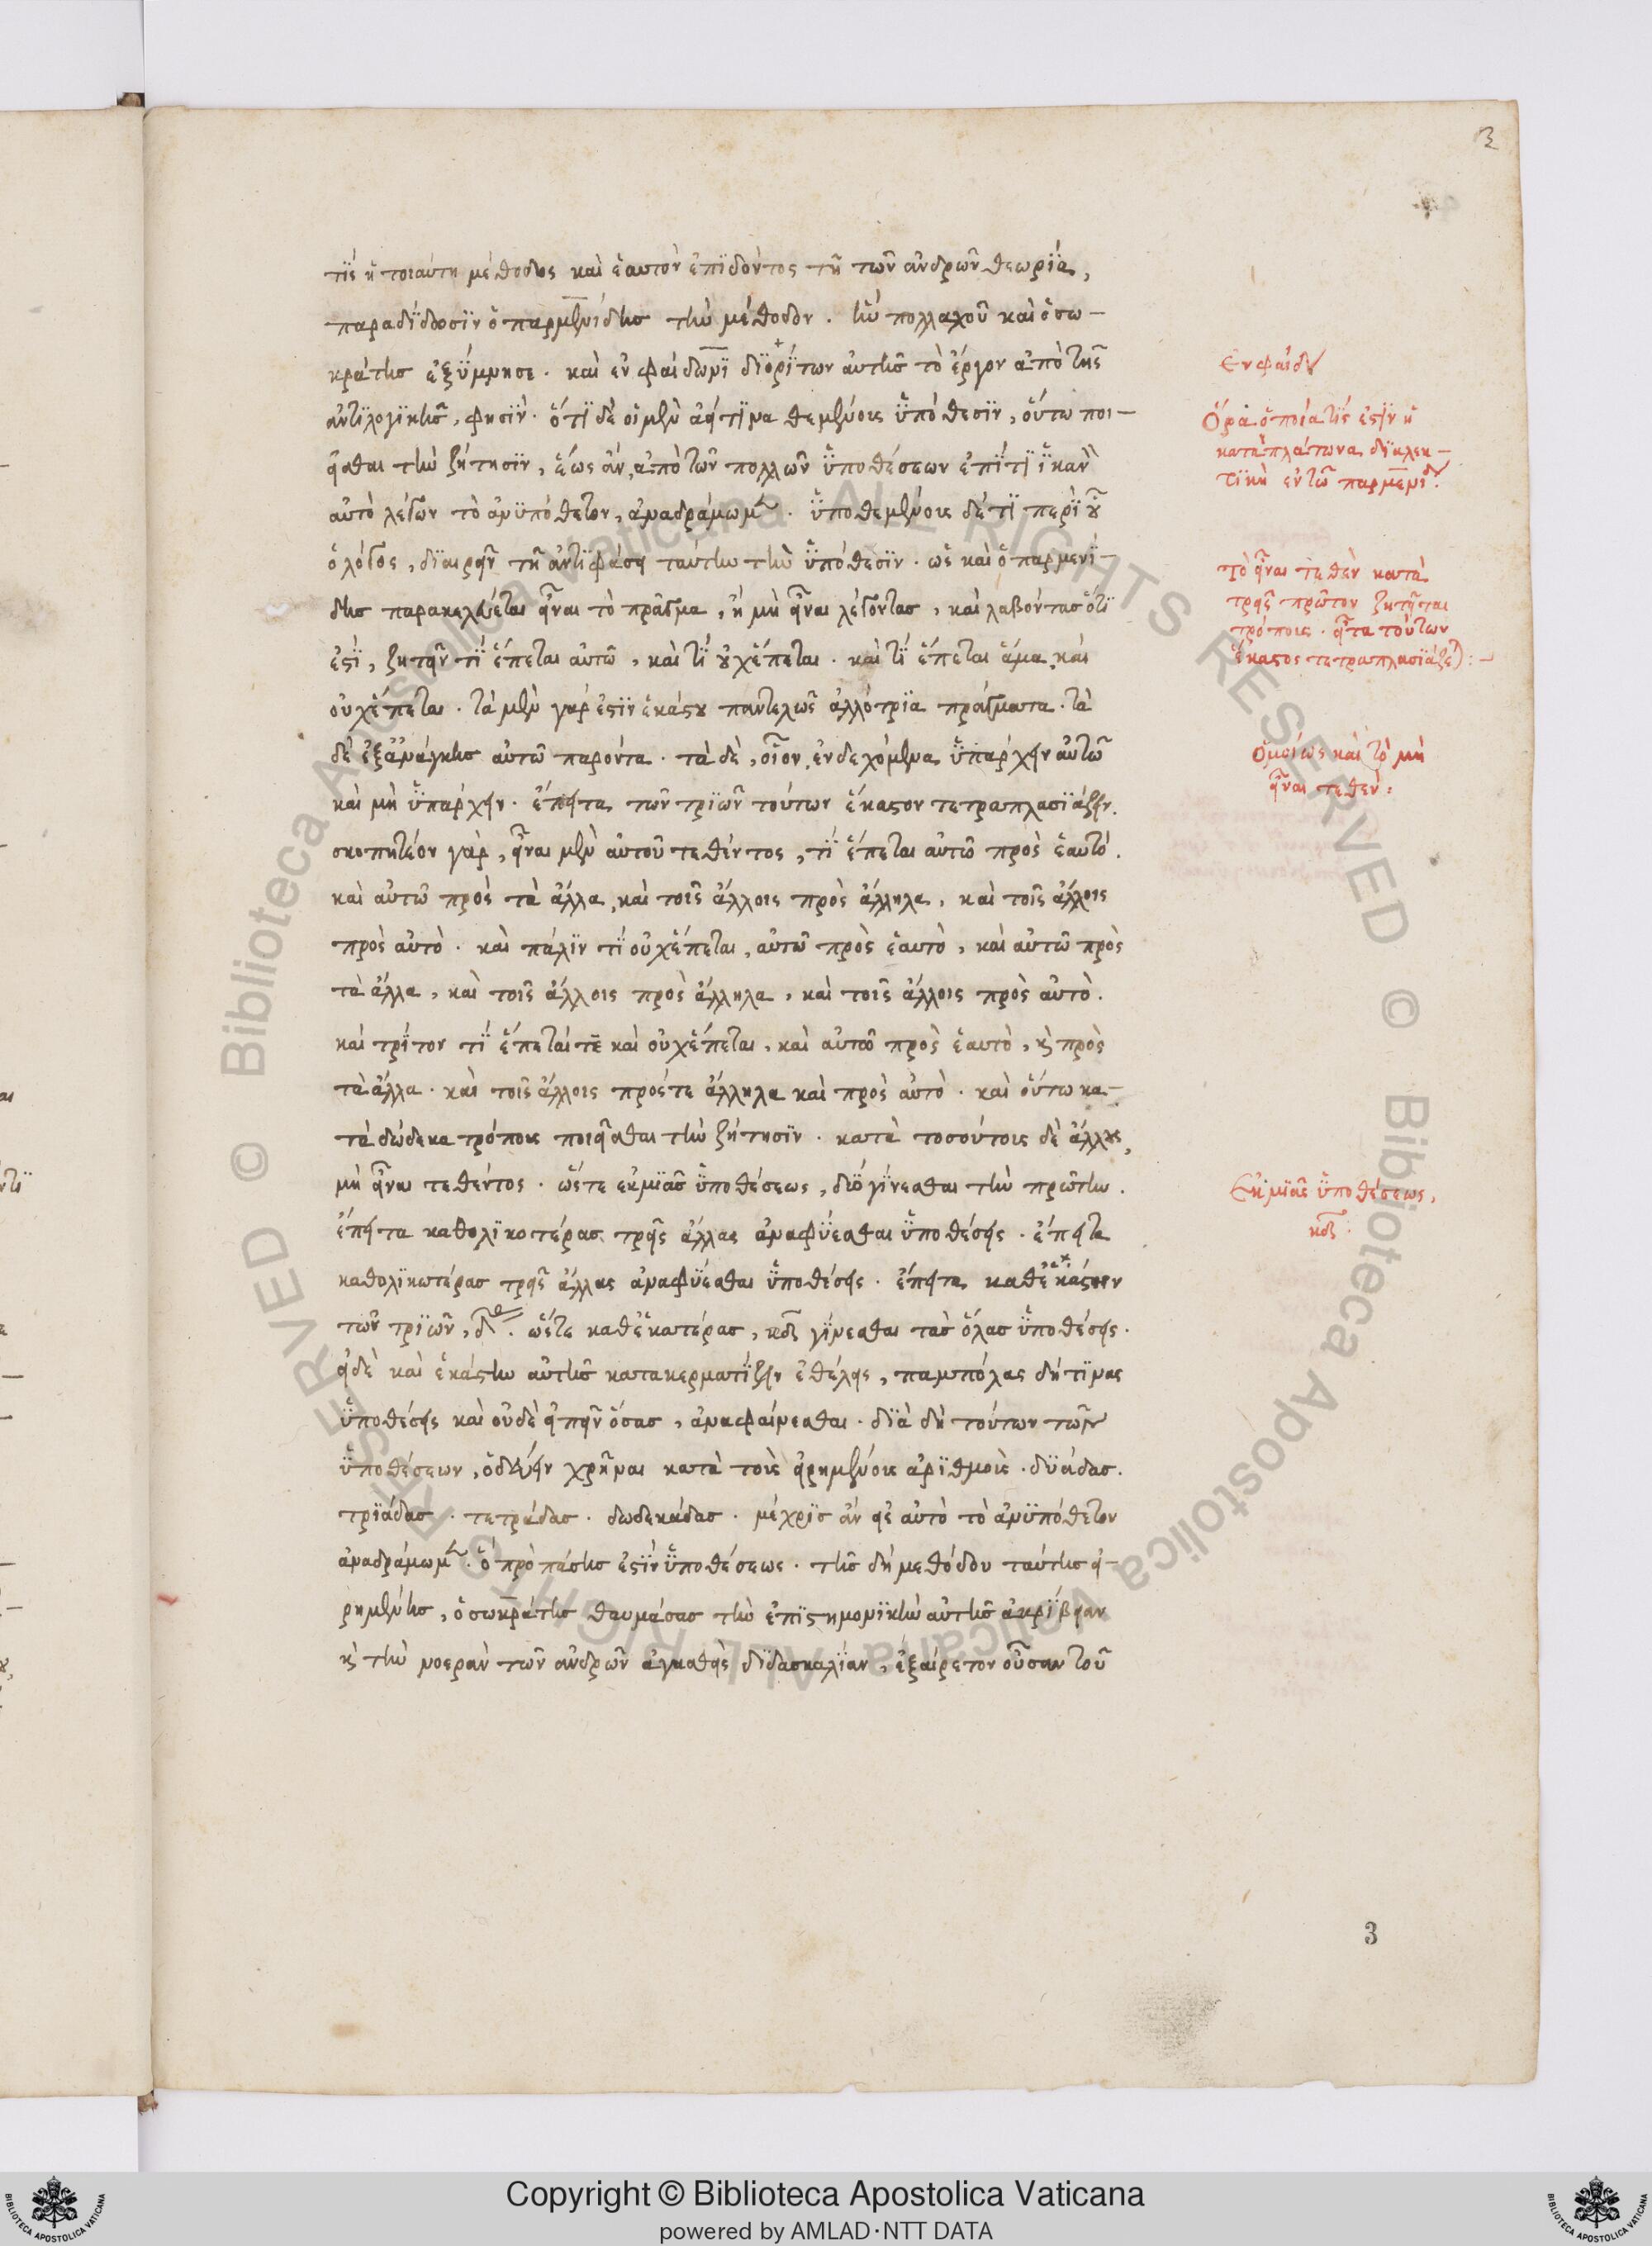 3
τίς ἡ τοιαύτη μέθοδος καὶ ἑαυτὸν ἐπϊδόντος τῆ τῶν ἀνδρῶν θεωρία,
παραδίδωσϊν ὁ παρμενίδης τὴν μέθοδον. ἣν πολλαχοῦ καὶ ὁ σω-
κράτης ἐξύμνησε. καὶ ἐν φαίδωνϊ διορίζων αὐτῆς τὸ ἔργον ἀπὸ τῆς
ἀντϊλογϊκῆς, φησϊν. ὅτϊ δεῖ μὲν ἀεί τϊνα θεμένους ὑπόθεσϊν, οὕτω ποι-
εῖσθαι τὴν ζήτησϊν, ἕως ἂν, ἀπὸ τῶν πολλῶν ὑποθέσεων ἐπί τϊ ἱκανὸν
αὐτὸ λέγων τὸ ἀνϋπόθετον, ἀναδράμωμεν. ὑποθεμένους δέ τϊ περὶ οὗ
ὁ λόγος, διαιρεῖν τῆ ἀντϊφάσει ταύτην τὴν ὑπόθεσϊν. ὡς καὶ ὁ παρμενί-
δης παρακελεύεται εἶναι τὸ πρᾶγμα, ἢ μὴ εἶναι λέγοντας, καὶ λαβόντας ὅτϊ
ἐστϊ, ζητεῖν τί ἕπεται αὐτῶ, καὶ τί οὐχ ἕπεται. καὶ τί ἕπεται ἅμα καὶ
οὐχ ἕπεται. τὰ μὲν γάρ ἐστϊν ἑκάστου παντελῶς ἀλλότρϊα πράγματα. τὰ
δὲ ἐξ ἀνάγκης αὐτῶ παρόντα. τὰ δὲ, οἷον ἐνδεχόμενα ὑπάρχειν αὐτῶ
καὶ μὴ ὑπάρχειν. ἔπειτα τῶν τρϊῶν τούτων ἕκαστον τετραπλασϊάζειν.
σκοπητέον γὰρ, εἶναι μὲν αὐτοῦ τεθέντος, τί ἕπεται αὐτῶ πρὸς ἑαυτό.
καὶ αὐτῶ πρὸς τὰ ἄλλα, καὶ τοῖς ἄλλοις πρὸς ἄλληλα, καὶ τοῖς ἄλλοις
πρὸς αὐτὸ. καὶ πάλϊν τί οὐχ ἕπεται, αὐτῶ πρὸς ἑαυτὸ, καὶ αὐτῶ πρὸς
τὰ ἄλλα, καὶ τοῖς ἄλλοις πρὸς ἄλληλα, καὶ τοῖς ἄλλοις πρὸς αὐτὸ.
καὶ τρίτον τί ἕπεταί τε καὶ οὐχ ἕπεται, καὶ αὐτῶ πρὸς ἑαυτὸ, καὶ πρὸς
τὰ ἄλλα. καὶ τοῖς ἄλλοις πρός τε ἄλληλα καὶ πρὸς αὐτὸ. καὶ οὕτω κα-
τὰ δώδεκα τρόπους ποιεῖσθαι τὴν ζήτησϊν. κατὰ τοσούτους δὲ ἄλλους,
μὴ εἶναι τεθέντος. ὥστε ἐκ μιᾶς ὑποθέσεως, δύο γίνεσθαι τὴν πρώτην.
ἔπειτα καθολϊκοτέρας τρεῖς ἄλλας ἀναφύεσθαι ὑποθέσεις. ἔπειτα
καθολϊκωτέρας τρεῖς ἄλλας ἀναφύεσθαι ὑποθέσεις. ἔπειτα καθ' ἑκάστην
τῶν τρϊῶν, δ. ὥστε καθ' ἑκατέρας, κδ γίνεσθαι τὰς ὅλας ὑποθέσεις.
εἰ δὲ καὶ ἑκάστην αὐτῆς κατακερματίζειν ἐθέλεις, παμπόλας δή τϊνας
ὑποθέσεις καὶ οὐδὲ εἰπεῖν ὅσας, ἀναφαίνεσθαι. δϊὰ δὴ τούτων τῶν
ὑποθέσεων, ὁδεύειν χρῆναι κατὰ τοὺς εἰρημένους ἀρϊθμοὺς. δϋάδας.
τρϊάδας. τετράδας. δωδεκάδας. μέχρϊς ἂν εἰς αὐτὸ τὸ ἀνϋπόθετον
ἀναδράμωμεν. ὃ πρὸ πάσης ἐστϊν ὑποθέσεως. τῆς δὴ μεθόδου ταύτης εἰ-
ρημένης, ὁ σωκράτης θαυμάσας τὴν ἐπϊστημονϊκὴν αὐτῆς ἀκρίβειαν
καὶ τὴν νοερὰν τῶν ἀνδρῶν ἀγασθεὶς δϊδασκαλίαν, ἐξαίρετον οὖσαν τοῦ
Ἐν φαίδω
Ὅρα ὁποία τίς ἐστϊν ἡ
κατὰ πλάτωνα δϊαλεκ-
τϊκὴ ἐν τῶ παρμενί.
Τὸ εἶναι τεθὲν κατὰ
τρεῖς πρῶτον ζητεῖται
τρόπους. εἶτα τούτων
ἕκαστος τετραπλασϊάζε):-
Ὁμοίως καὶ τὸ μὴ
εἶναι τεθέν:
Ἐκ μϊᾶς ὑποθέσεως,
κδ:
3
© Biblioteca Apostolica Vaticana ALL RIGHTS RESERVED © Biblioteca Apostolica Vaticana ALL RIGHTS RESERVED
Copyright © Biblioteca Apostolica Vaticana
powered by AMLAD·NTT DATA
BIBLIOTECA APOSTOLICA VATICANA
BIBLIOTECA APOSTOLICA VATICANA